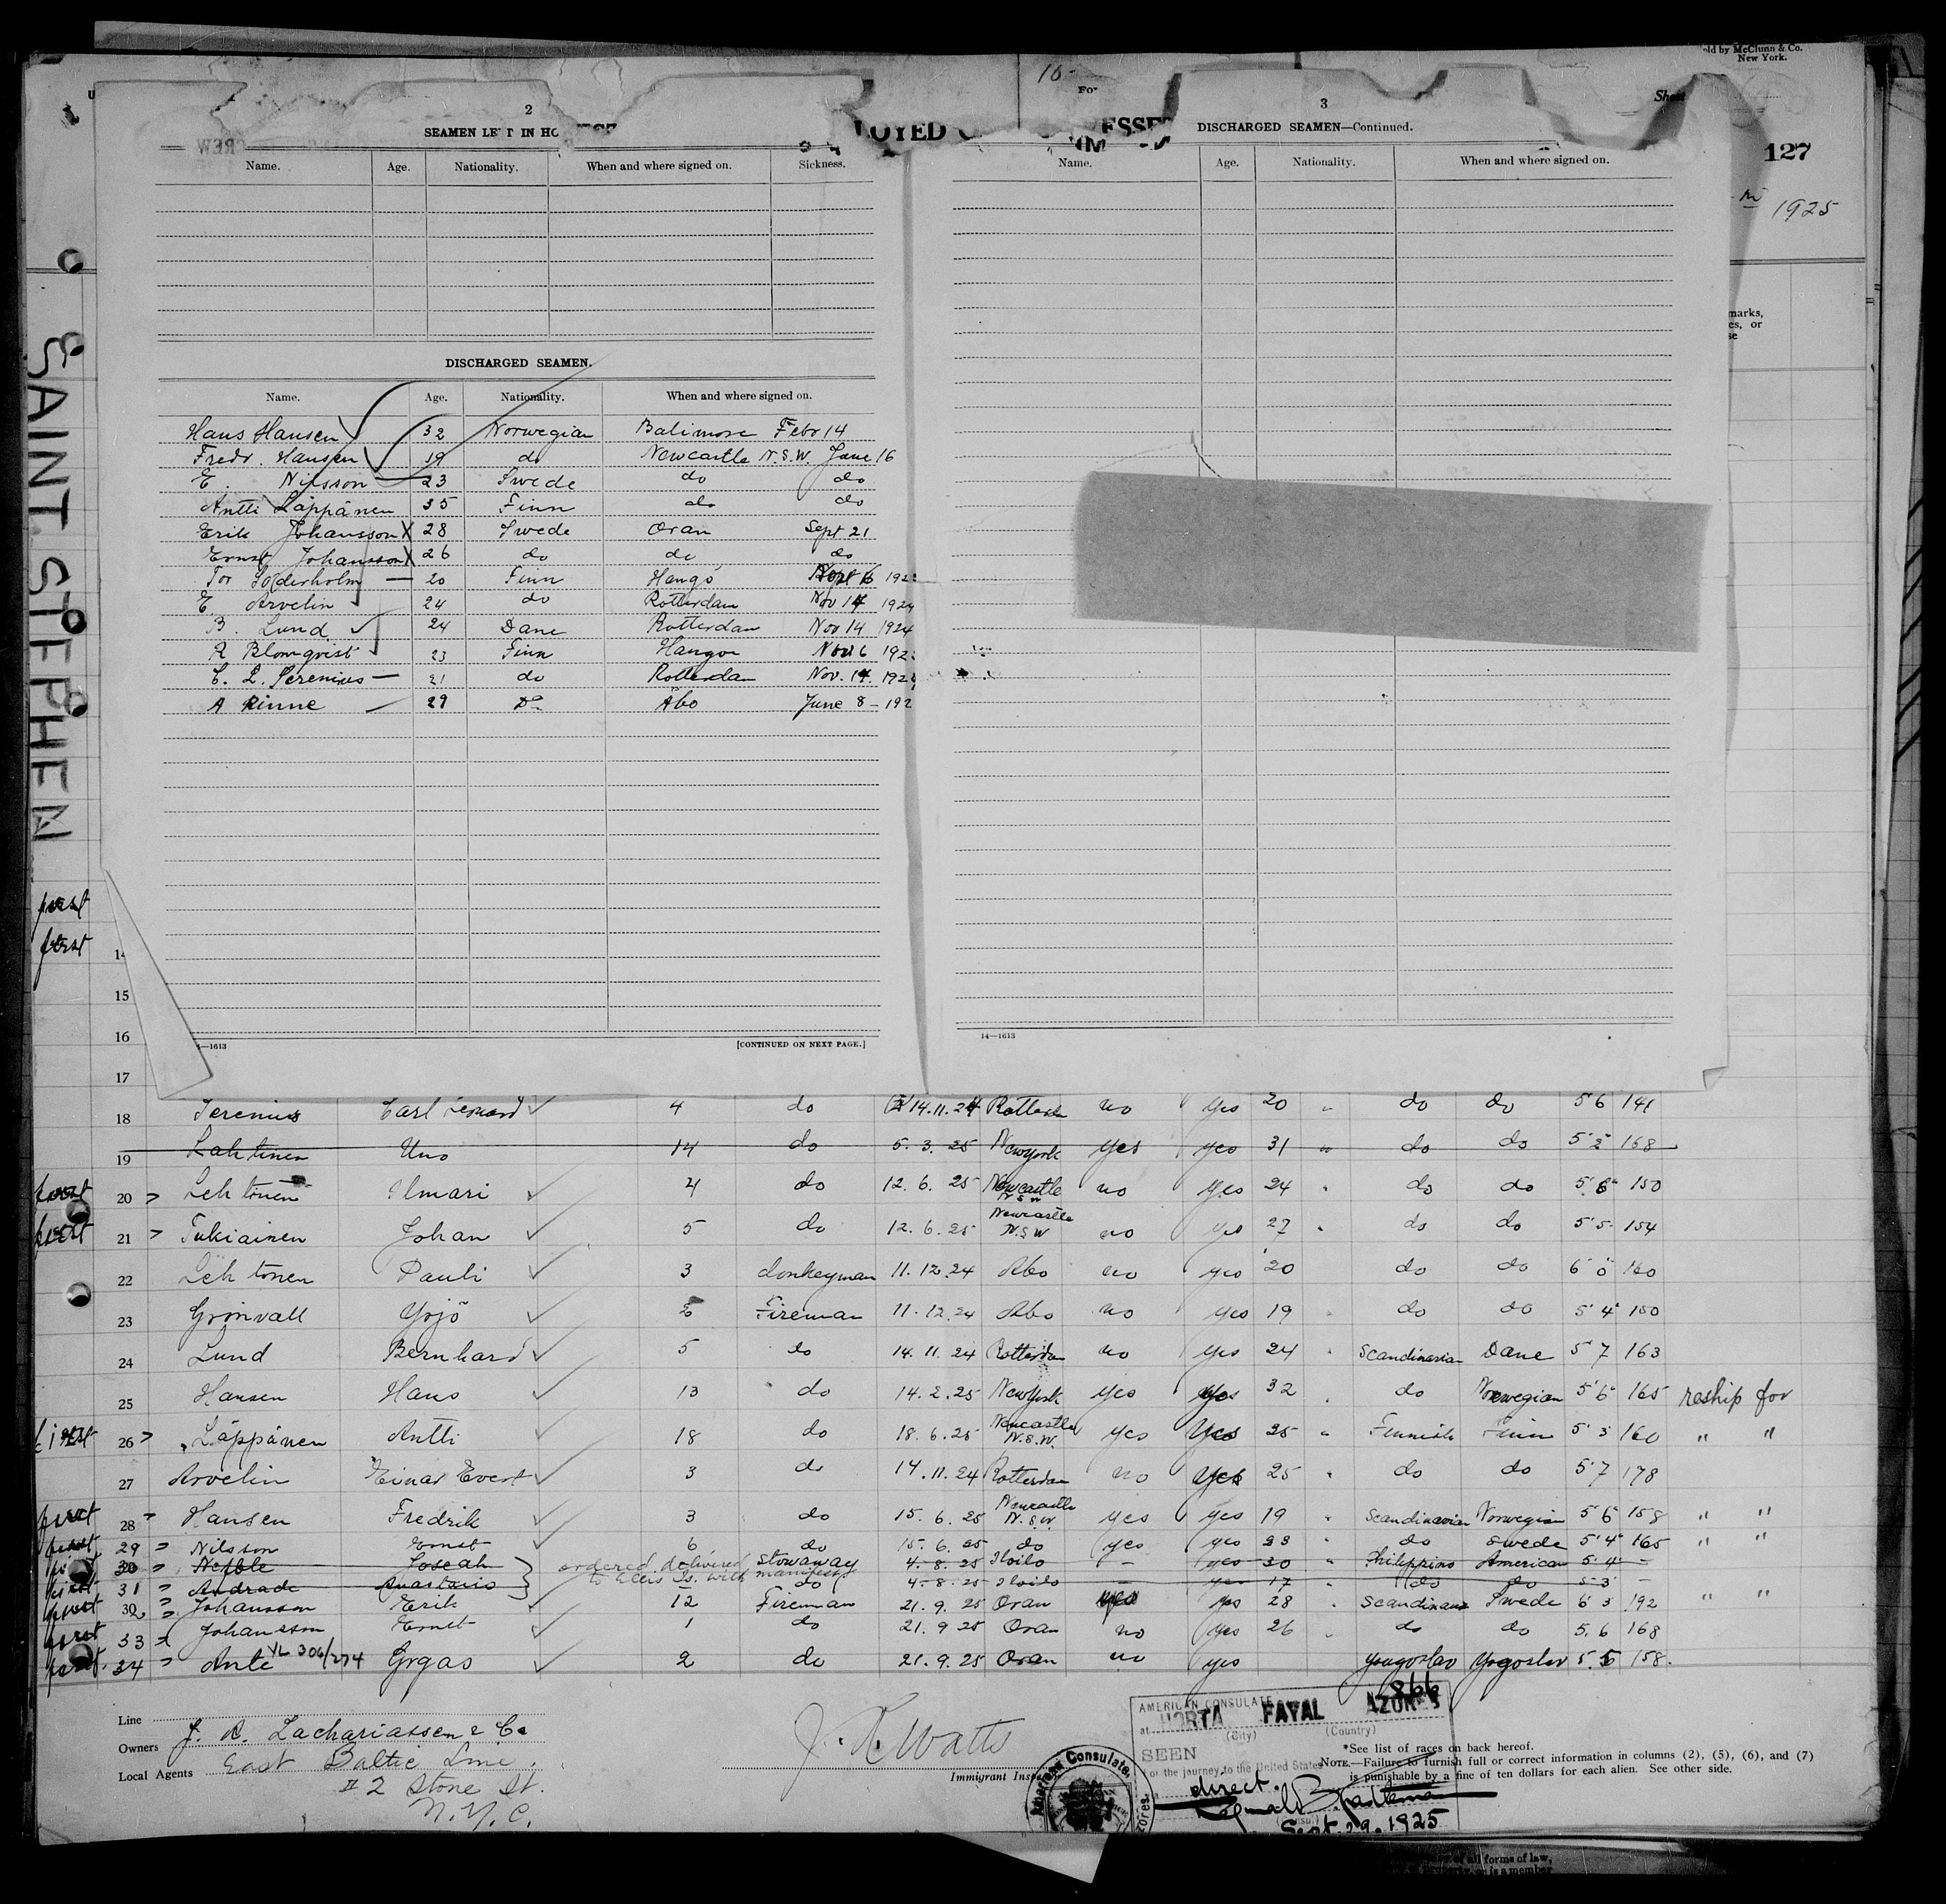 ld by McClunn & Co.
New York.
Sheet
127
1925
marks,
es, or
se
SAINT STEPHEN
2
SEAMEN LEFT IN HO
Name. Age. Nationality. When and where signed on. Sickness.
DISCHARGED SEAMEN.
Name. Age. Nationality. When and where signed on.
Hans Hansen 32 Norwegian Balimore Febr 14
Fredr. Hansen 19 do Newcastle N.S.W. June 16
E. Nilsson 23 Swede do do
Antti Läppänen 35 Finn do do
Erik Johansson X 28 Swede Oran Sept 21
Ernst Johansson X 26 do do do
Tor Söderholm — 20 Finn Hangö 192
E. Arvelin 24 do Rotterdam Nov 14 1924
B. Lund 24 Dane Rotterdam Nov 14 1924
A Blomqvist 23 Finn Hangoe Nov 6 192
C. L. Serenius — 21 do Rotterdam Nov. 14. 1924
A Rinne 29 Do Åbo June 8 - 192
—1613 [CONTINUED ON NEXT PAGE.]
3
DISCHARGED SEAMEN—Continued.
Name. Age. Nationality. When and where signed on.
14—1613
first
first
14
15
16
17
18 Serenius Carl Leonard 4 do 14.11.24 Rotterdam no yes 20 " do do 5 6 141
19 Lahtinen Uno 14 do 5.3.25 Newyork yes yes 31 " do do 5 2 168
first 20 Lehtonen Ilmari 4 do 12.6.25 Newcastle N S W no yes 24 " do do 5 6 150
first 21 Tukiainen Johan 5 do 12.6.25 Newcastle N.S.W no yes 27 " do do 5 5 154
22 Lehtonen Pauli 3 donkeyman 11.12.24 Abo no yes 20 do do 6 0 160
23 Grönvall Yrjö Fireman 11.12.24 Abo no yes 19 " do do 5 4 150
24 Lund Bernhard 5 do 14.11.24 Rotterdam no yes 24 " Scandinavian Dane 5 7 163
25 Hansen Hans 13 do 14.2.25 Newyork yes yes 32 " do Norwegian 5 6 165 reship for
first 26 Läppänen Antti 18 do 18.6.25 Newcastle N.S.W. yes yes 25 " Finnish Finn 5 3 160 " "
27 Arvelin Einar Evert 3 do 14.11.24 Rotterdam no yes 25 " do do 5 7 178
first 28 Hansen Fredrik 3 do 15.6.25 Newcastle N.S.W. yes yes 19 " Scandinavian Norwegian 5 6 158 " "
first 29 Nilsson Ernst 6 do 15.6.25 do yes yes 23 " do Swede 5 4 165 " "
first 30 Joseah ordered delivered Stowaway 4.8.25 Iloilo - yes 30 " Philippino American 5 4 -
first 31 Andrade Anastario to Ellis Is. with manifest do 4.8.25 Iloilo - yes 17 " do do 5 3 -
first 32 Johansson Erik 12 Fireman 21.9.25 Oran yes 28 " Scandinavn Swede 6 3 192 " "
first 33 Johansson Ernst 1 do 21.9.25 Oran no yes 26 " do do 5.6 168
first 34 Ante VL 306/274 Grgas 2 do 21.9.25 Oran no yes Yougoslav Yugoslav 5.5 158.
Line
Owners J. A. Zachariassen & Co
Local Agents East Baltic Line.
# 2 Stone St.
N.Y.C.
J. R Watts
Immigrant Insp
American Consulate
866
AMERICAN CONSULATE
at HORTA FAYAL AZORES
(City) (Country)
SEEN
for the journey to the United States
direct.
Sept. 29. 1925
*See list of races on back hereof.
NOTE.—Failure to furnish full or correct information in columns (2), (5), (6), and (7)
is punishable by a fine of ten dollars for each alien. See other side.
all forms of law,
is a member